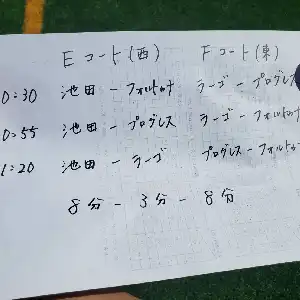 Eコート(西) Fコート(東)
0:30 池田 - フォルトゥナ ラーゴ - プログレス
0:55 池田 - プログレス ラーゴ - フォルトゥ
1:20 池田 - ラーゴ プログレス - フォルトゥ
8分 - 3分 - 8分